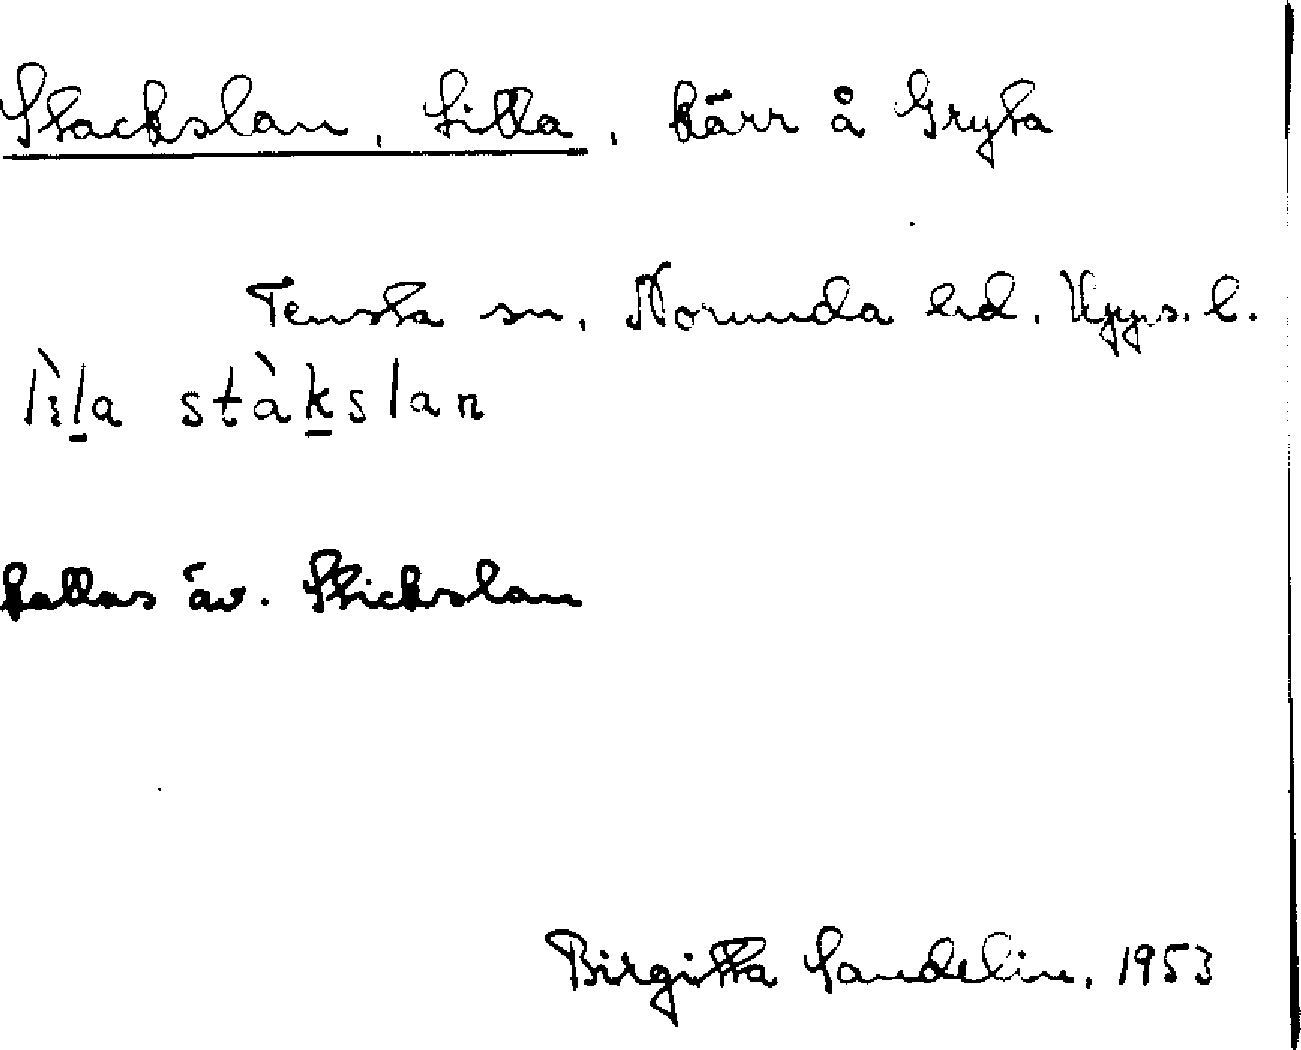 Stackslan, Lilla, kärr å Gryta
Tensta sn, Norunda hd. Upps. l.
lìl̲a stàk̲slan
kallas äv. Stickslan
Birgitta Sandelin, 1953